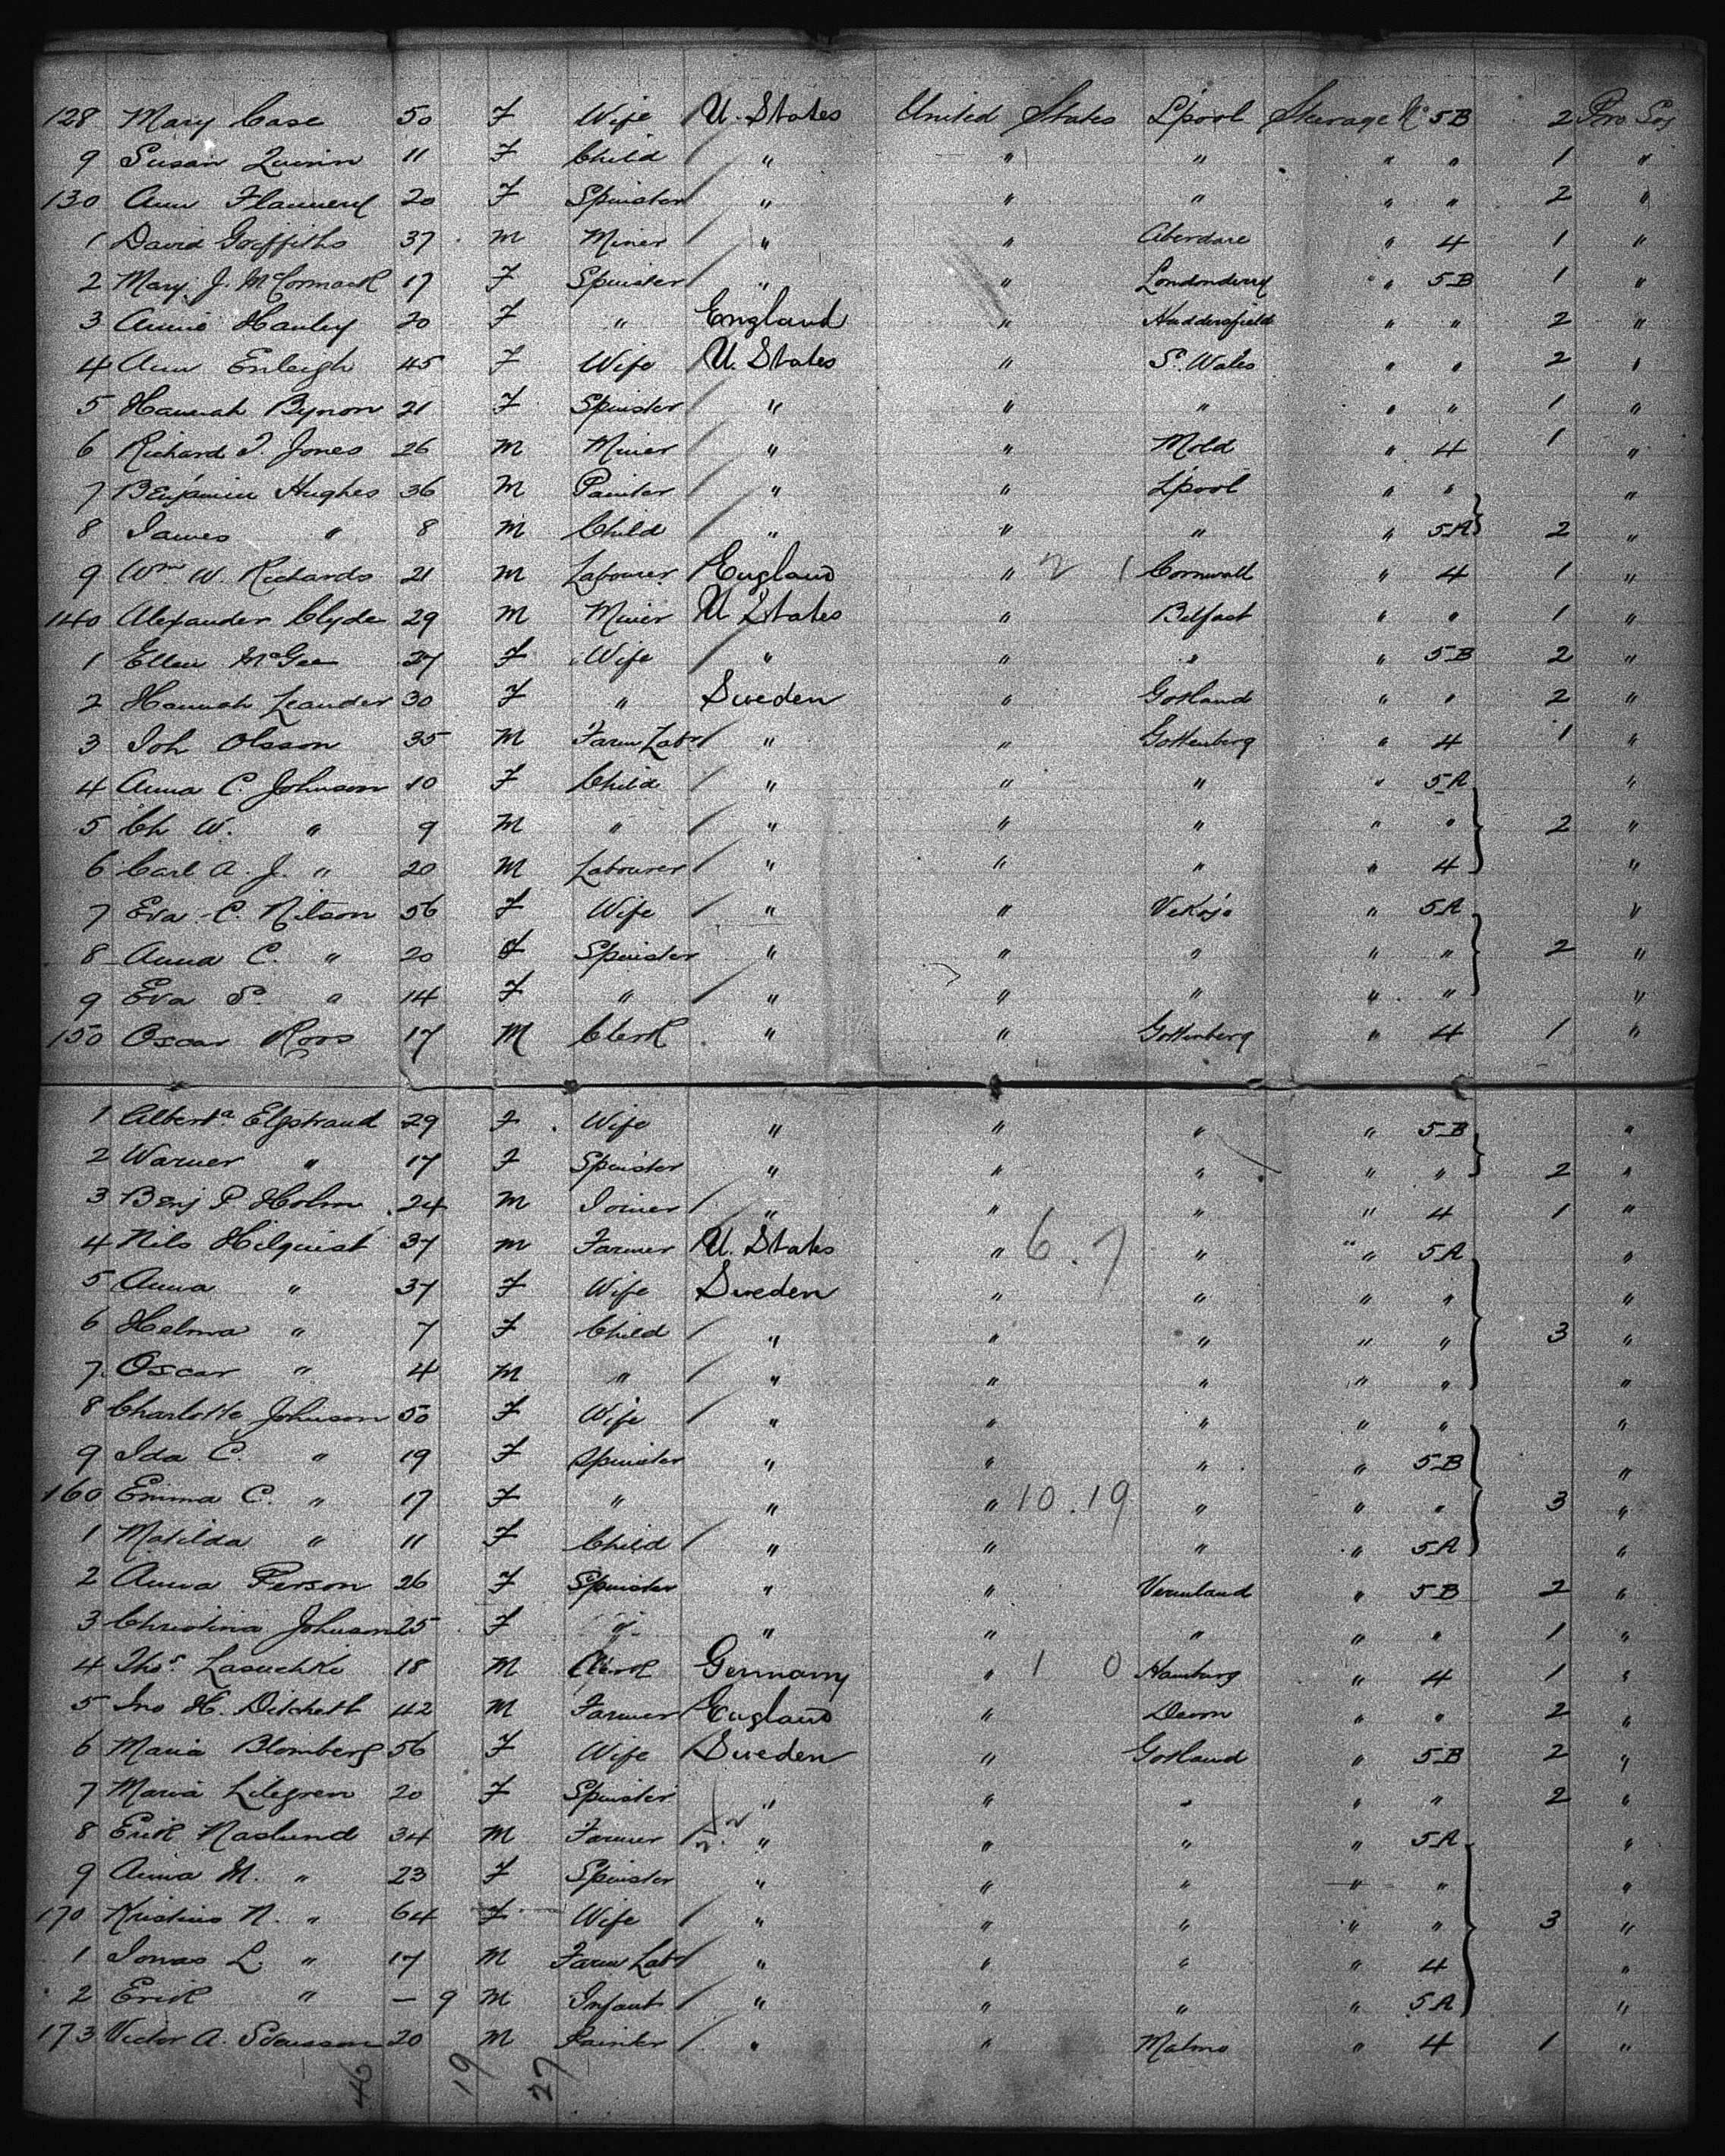 128 Mary Case 50 F Wife U. States United States L'pool Steerage No 5B 2 Pro Soj
9 Susan Quinn 11 F Child " " " " " 1 "
130 Ann Flannery 20 F Spinster " " " " " 2 "
1 David Griffiths 37 M Miner " " Aberdare " 4 1 "
2 Mary J. McCormack 17 F Spinster " " Londonderry " 5B 1 "
3 Annie Hanley 20 F " England " Huddersfield " " 2 "
4 Ann Enleigh 45 F Wife U. States " S. Wales " " 2 "
5 Hannah Bynon 21 F Spinster " " " " " 1 "
6 Richard J. Jones 26 M Miner " " Mold " 4 1 "
7 Benjamin Hughes 36 M Painter " " L'pool " " "
8 James " 8 M Child " " " " 5A 2 "
9 Wm W. Richards 21 M Labourer England " 2 1 Cornwall " 4 1 "
140 Alexander Clyde 29 M Miner U States " Belfast " " 1 "
1 Ellen McGee 27 F Wife " " " " 5B 2 "
2 Hannah Leander 30 F " Sweden " Gotland " " 2 "
3 Joh Olsson 35 M Farm Labr " " Gottenberg " 4 1 "
4 Anna C. Johnson 10 F Child " " " " 5A "
5 Ch W. " 9 M " " " " " " 2 "
6 Carl A. J. " 20 M Labourer " " " " 4 "
7 Eva C. Nilson 56 F Wife " " Vekojo " 5A "
8 Anna C. " 20 F Spinster " " " " " 2 "
9 Eva S. " 14 F " " " " " " "
150 Oscar Roos 17 M Clerk " " Gottenberg " 4 1 "
1 Alberta Elgstrand 29 F Wife " " " " 5B "
2 Warner " 17 F Spinster " " " " " 2 "
3 Benj P. Holm 24 M Joiner " " " " 4 1 "
4 Nils Hilquist 37 M Farmer U. States " 6.7 " " 5A "
5 Anna " 37 F Wife Sweden " " " " "
6 Helma " 7 F Child " " " " " 3 "
7 Oscar " 4 M " " " " " " "
8 Charlotte Johnson 50 F Wife " " " " " "
9 Ida C. " 19 F Spinster " " " " 5B "
160 Emma C. " 17 F " " " 10.19 " " " 3 "
1 Matilda " 11 F Child " " " " 5A "
2 Anna Person 26 F Spinster " " Vermland " 5B 2 "
3 Christina Johnson 25 F " " " " " " 1 "
4 Thos Lasuchke 18 M Clerk Germany " 1 0 Hamburg " 4 1 "
5 Jno H. Ditchett 42 M Farmer England " Devon " " 2 "
6 Maria Blomberg 56 F Wife Sweden " Gotland " 5B 2 "
7 Maria Lilegren 20 F Spinster " " " " " 2 "
8 Erik Naslund 34 M Farmer " " " " 5A "
9 Anna M. " 23 F Spinster " " " " " "
170 Kristina N. " 64 F Wife " " " " " 3 "
1 Jonas L. " 17 M Farm Labr " " " " 4 "
2 Erik " — 9 M Infant " " " " 5A "
173 Victor A. Svensson 20 M Painter " " Malmo " 4 1 "
46 19 27